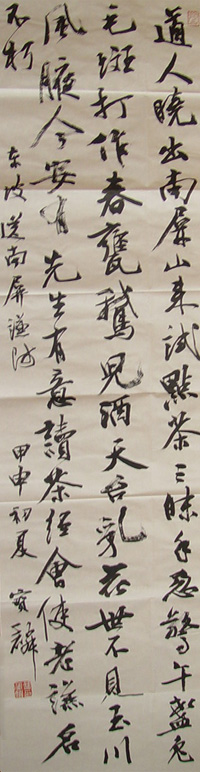 道人曉出南屏山來試點茶三昧手忽驚午盞兔
毛斑打作春甕鵞兒酒天台乳花世不見玉川
風腋今安有先生有意讀茶經會使老謙名
不朽 東坡送南屏謙師 甲申初夏 寶麟